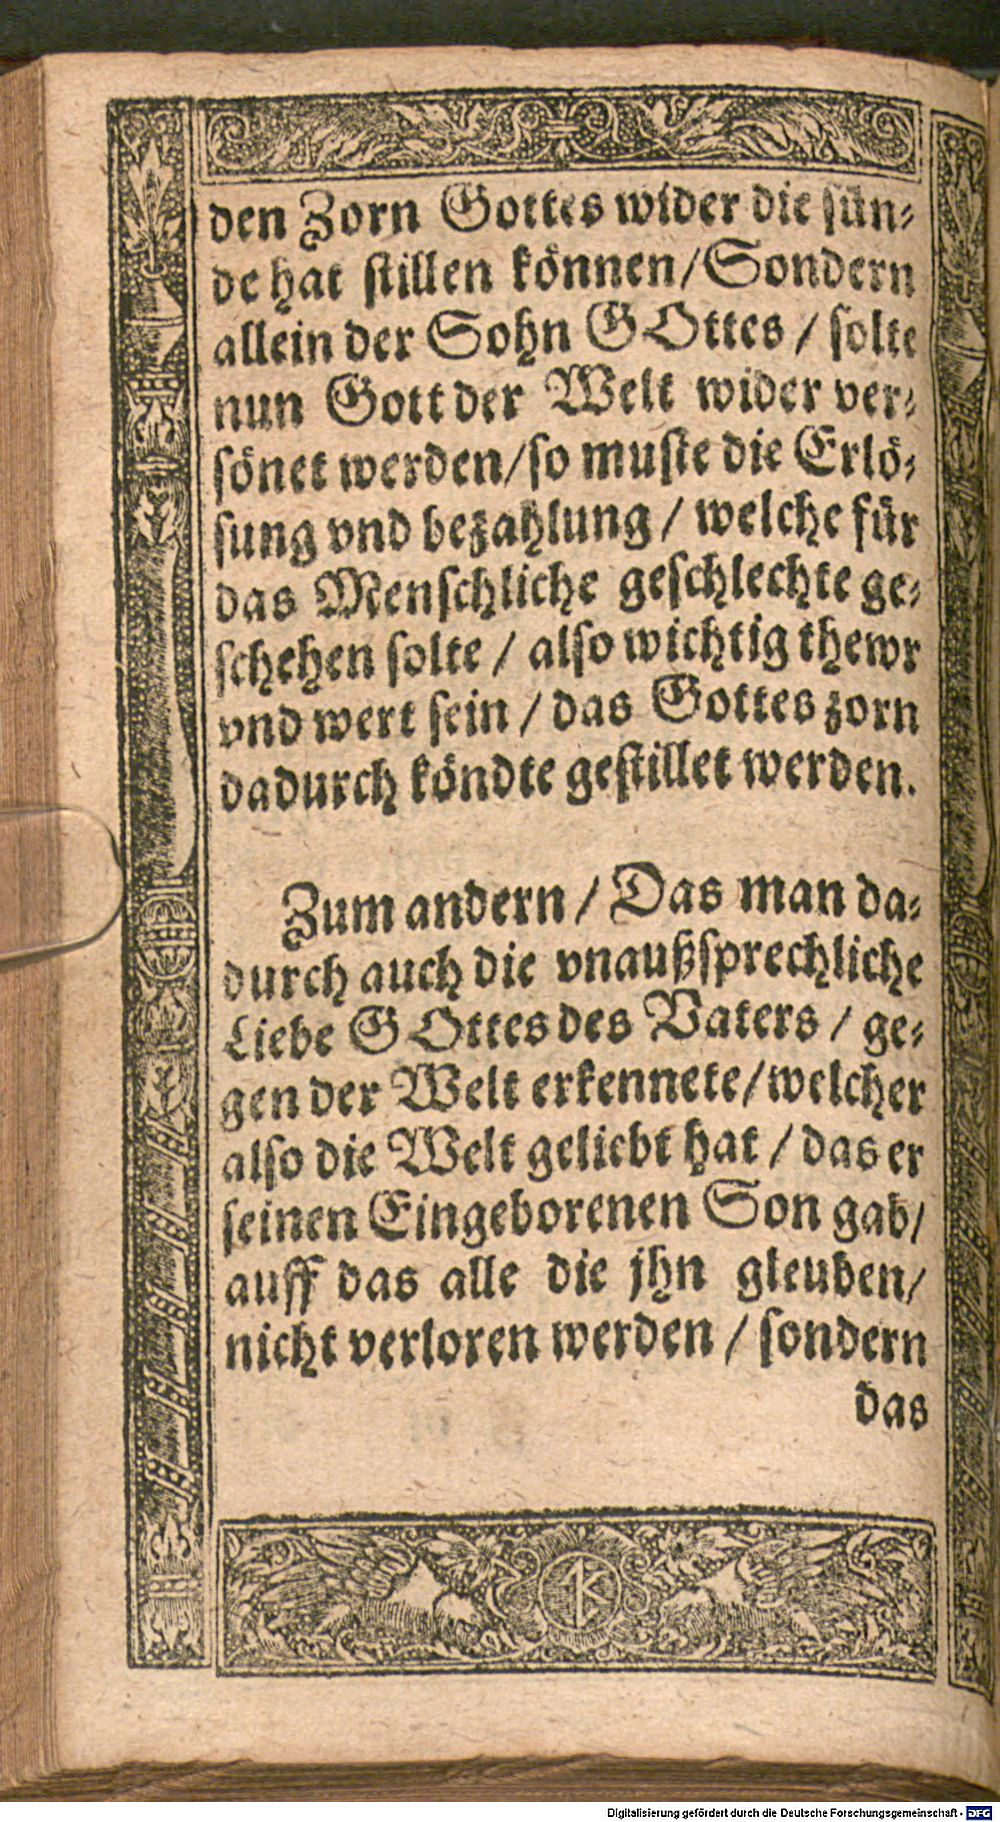 den Zorn Gottes wider die sün⸗
de hat stillen können/Sondern
allein der Sohn GOttes / solte
nun Gott der Welt wider ver⸗
sönet werden/so muste die Erlö⸗
sung vnd bezahlung / welche für
das Menschliche geschlechte ge⸗
schehen solte / also wichtig thewr
vnd wert sein / das Gottes zorn
dadurch köndte gestillet werden.
Zum andern / Das man da⸗
durch auch die vnaußsprechliche
Liebe GOttes des Vaters / ge⸗
gen der Welt erkennete/welcher
also die Welt geliebt hat / das er
seinen Eingeborenen Son gab/
auff das alle die jhn gleuben/
nicht verloren werden / sondern
das
Digitalisierung gefördert durch die Deutsche Forschungsgemeinschaft - DFG